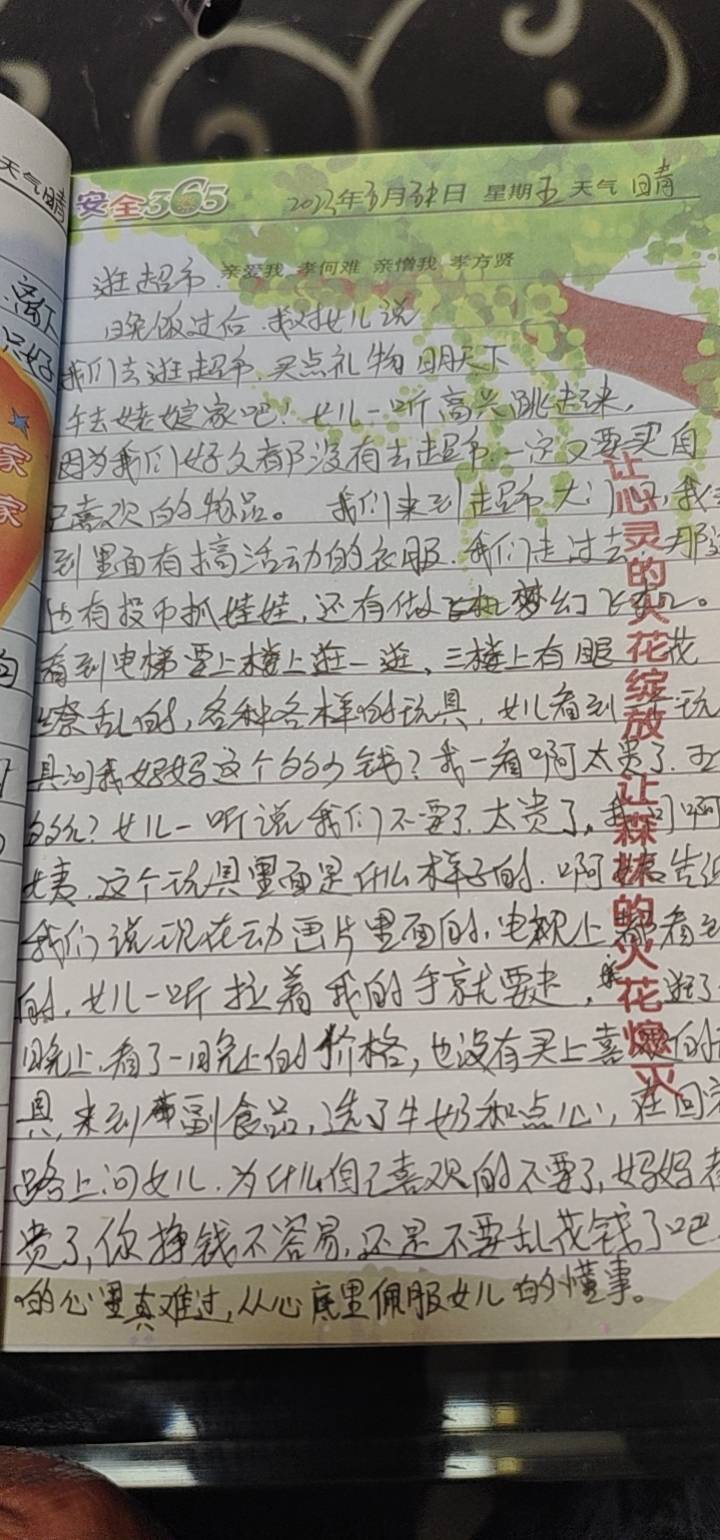 天气晴
安全365
2023年3月31日 星期五 天气 晴
亲爱我 孝何难 亲憎我 孝方贤
逛超市
晚饭过后,我对女儿说
我们去逛超市,买点礼物明天下
午去姥娘家吧!女儿一听高兴跳起来,
因为我们好久都没有去超市,一定又要买自
己喜欢的物品。 我们来到超市大门口,我
到里面有搞活动的衣服,我们走过去,那
也有投币抓娃娃,还有做飞机梦幻飞
看到电梯要上楼上逛一逛,三楼上有眼花
缭乱的,各种各样的玩具,女儿看到玩
具问我妈妈这个多少钱?我一看啊太贵了,
女儿一听说我们不要了,太贵了,我问啊
姨,这个玩具里面是什么样子的,啊姨告诉
我们说现在动画片里面的,电视上都看到
的,女儿一听拉着我的手就要走,逛了
晚上,看了一晚上的价格,也没有买上喜欢的
具,来到副食品,选了牛奶和点心,在回家
路上问女儿,为什么自己喜欢的不要了,妈妈
贵了,你挣钱不容易,还是不要乱花钱了吧
的心里真难过,从心底里佩服女儿的懂事。
让心灵的火花绽放 让森林的火花熄灭